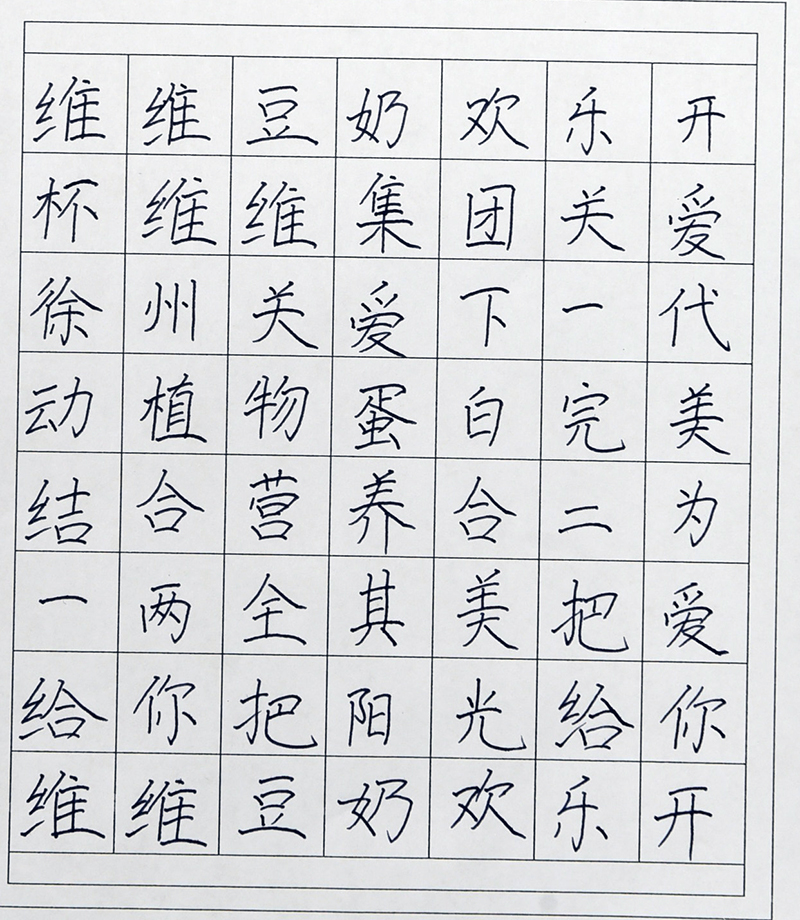 维维豆奶欢乐开
杯维维集团关爱
徐州关爱下一代
动植物蛋白完美
结合营养合二为
一两全其美把爱
给你把阳光给你
维维豆奶欢乐开